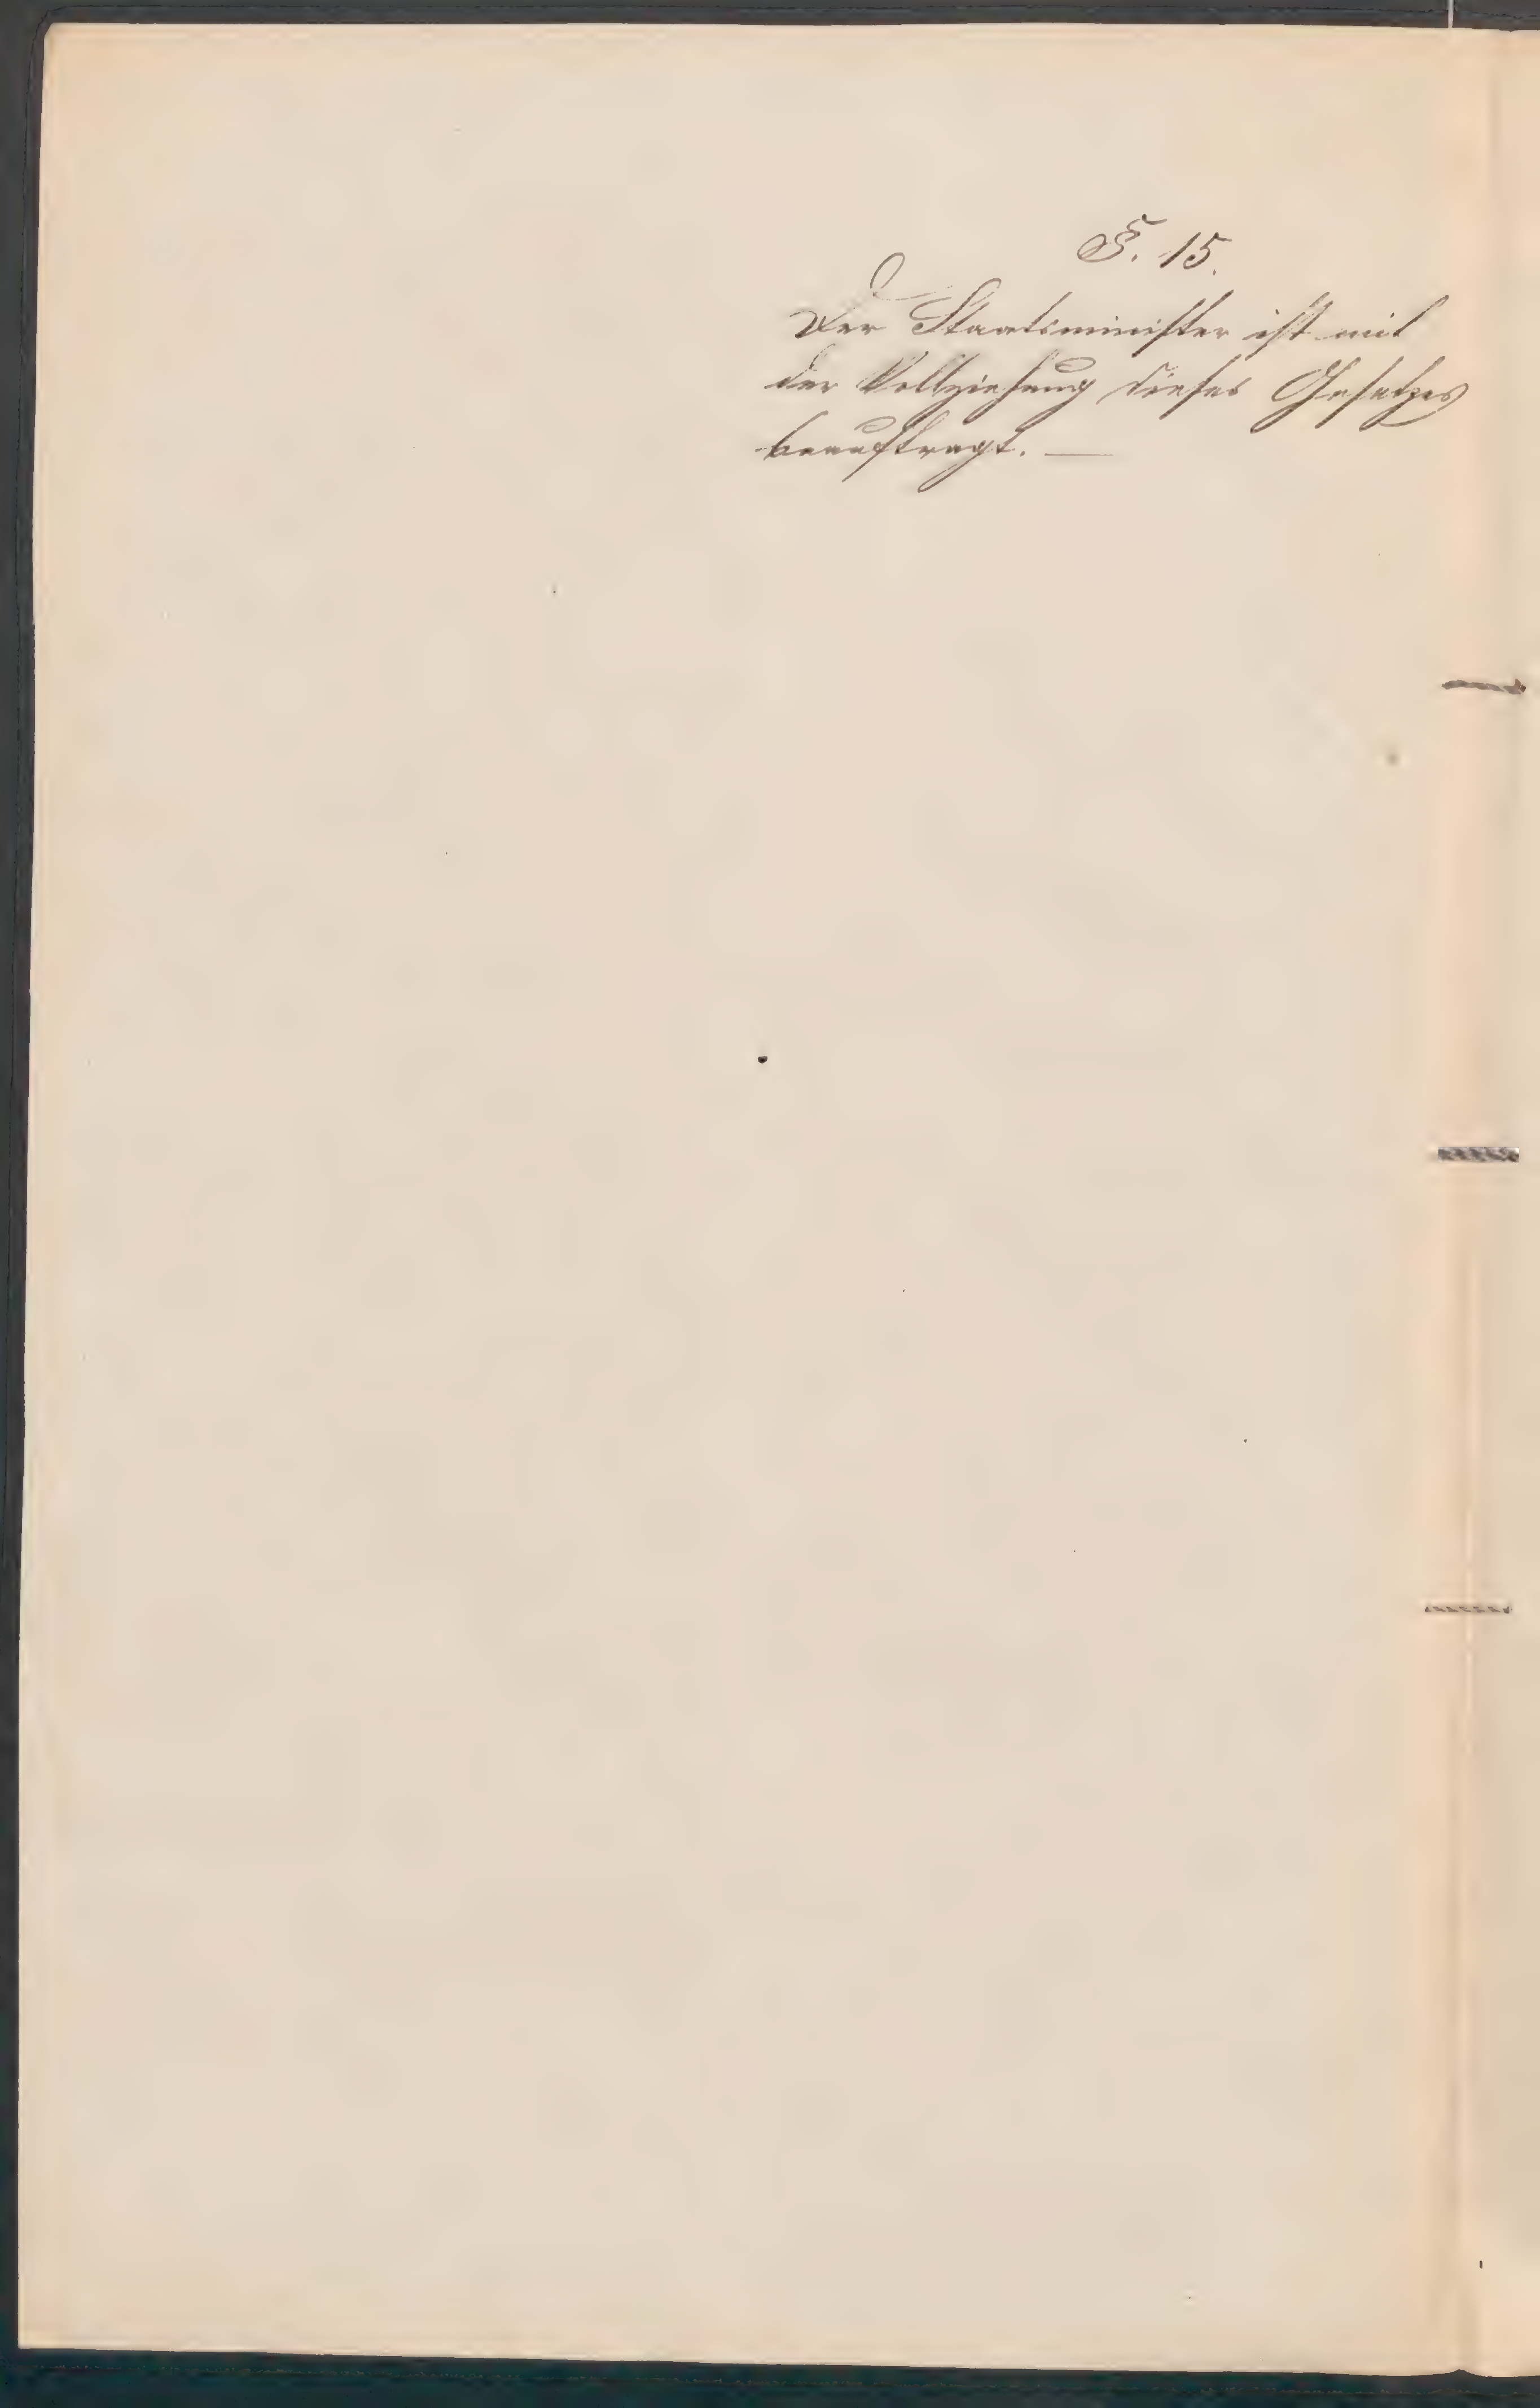 §. 15.
Der Staatsminister ist mit
der Vollziehung dieses Gesetzes
beauftragt. —